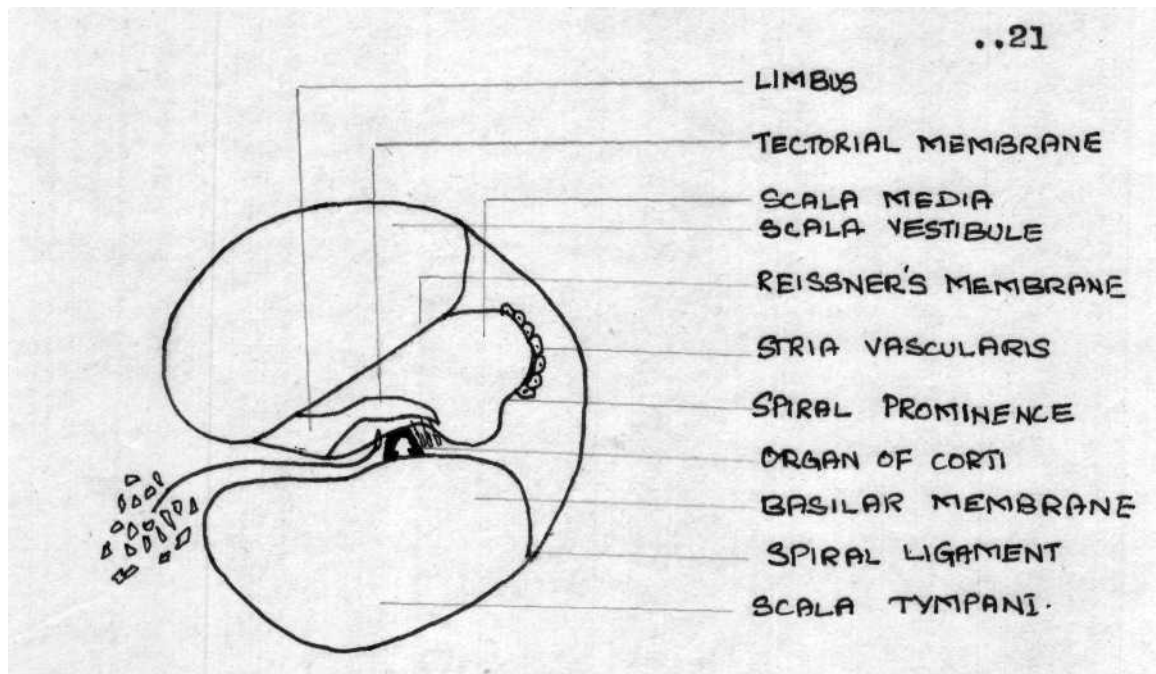 ..21
LIMBUS
TECTORIAL MEMBRANE
SCALA MEDIA
SCALA VESTIBULE
REISSNER'S MEMBRANE
STRIA VASCULARIS
SPIRAL PROMINENCE
ORGAN OF CORTI
BASILAR MEMBRANE
SPIRAL LIGAMENT
SCALA TYMPANI.